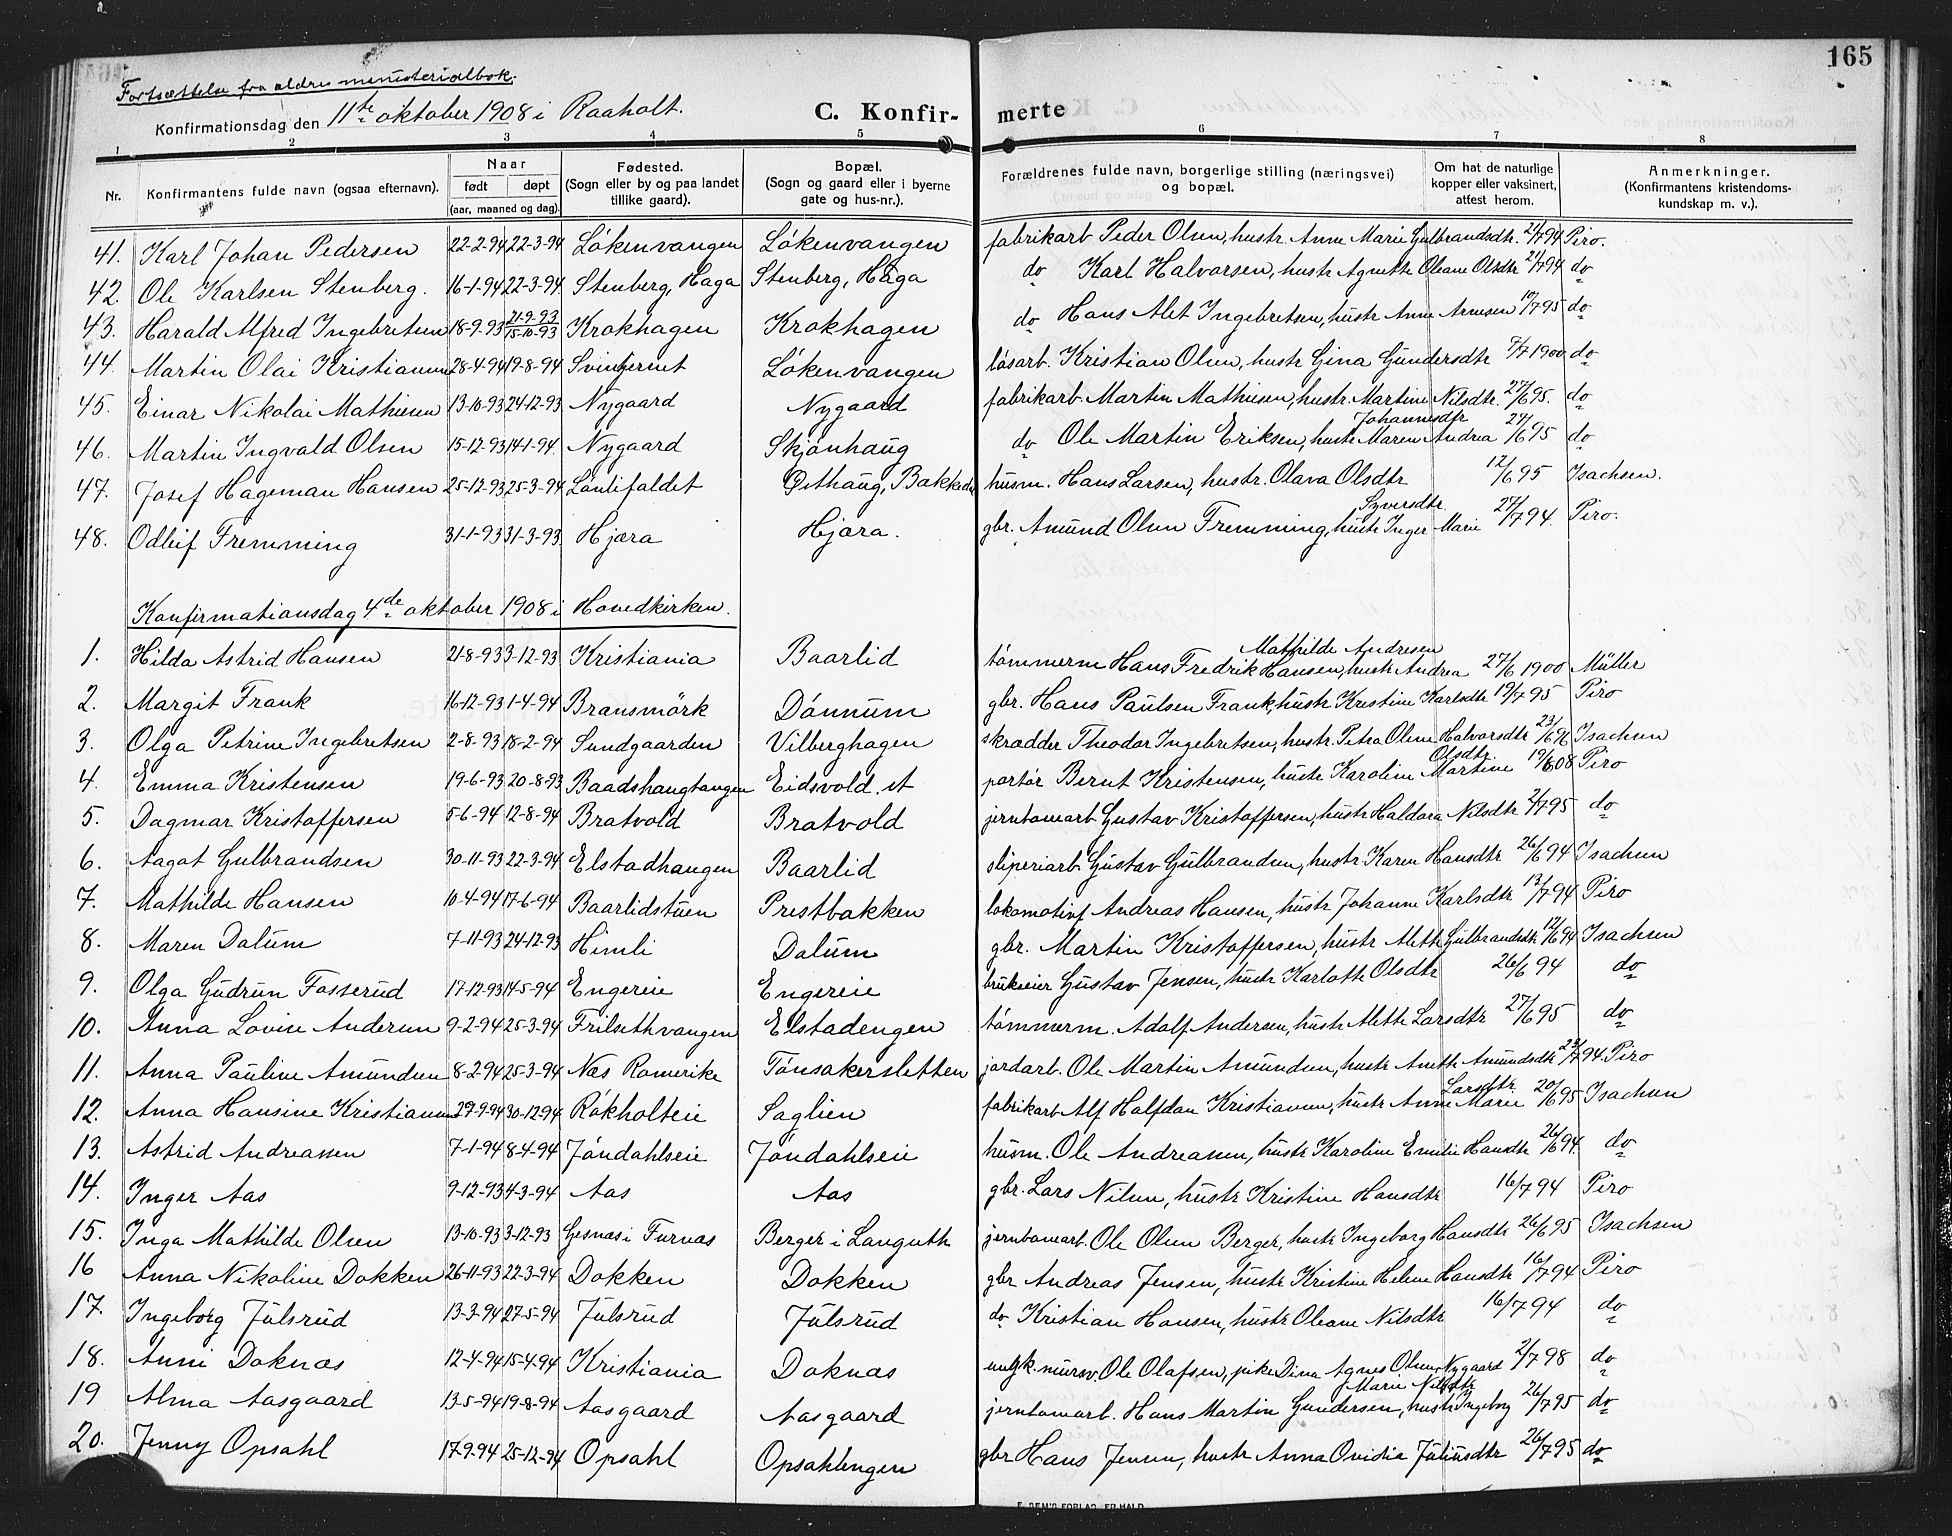 165
Fortsættelse fra ældre ministerialbok.
Konfirmationsdag den 11te oktober 1908 i Raaholt.
C. Konfirmerte
1 2 3 4 5 6 7 8
Nr. | Konfirmantens fulde navn (ogsaa efternavn). | Naar født | døpt (aar, maaned og dag). | Fødested. (Sogn eller by og paa landet tillike gaard). | Bopæl. (Sogn og gaard eller i byerne gate og hus-nr.). | Forældrenes fulde navn, borgerlige stilling (næringsvei) og bopæl. | Om hat de naturlige kopper eller vaksinert, atfest herom. | Anmerkninger. (Konfirmantens kristendoms-kundskap m. v.).
41. Karl Johan Pedersen 22-2-94 22-3-94 Lökenvangen Lökenvangen fabrikarb Peder Olsen, hustr. Anne Marie Gulbrandsdtr. 2/7 94 Piro.
42 Ole Karlsen Stenberg. 16-1-94 22-3-94 Stenberg, Haga Stenberg, Haga do Karl Halvorsen, hustr Agnethe Oleane Olsdtr 2/7 94 do
43. Harald Alfred Ingebretsen 18-9-93 21-9-93 15-10-93 Krokhagen Krokhagen do Hans Alet Ingebretsen, hustr Anne Arnesen 10/7 95 do
44. Martin Olai Kristiansen 28-4-94 19-8-94 Lökenvangen lösarb. Kristian Olsen, hustr Gina Gundersdtr 7/7 1900 do
45. Einar Nikolai Mathiesen 13-10-93 24-12-93 Nygaard Nygaard fabrikarb. Martin Mathiesen, hustr. Martine Nilsdtr. 27/6 95. do
46. Martin Ingvald Olsen 15-12-93 14-1-94 Nygaard Skjönhaug do Ole Martin Eriksen, hustr Maren Andrea Johannesdtr 27/6 95 do
47. Josef Hageman Hansen 25-12-93 25-3-94 Löntifaldet Østhaug, Bakkedr husm. Hans Larsen, hustr. Olava Olsdtr 12/6 95 Isachsen.
48. Odleif Fremming 31-1-93 31-3-93 Hjæra Hjæra. gbr. Amund Olsen Fremming, hustr Inger Marie Syversdtr. 27/7 94. Piro.
Konfirmationsdag 4de oktober 1908 i Hovedkirken.
1. Hilda Astrid Hansen 21-8-93 3-12-93 Kristiania Baarlid tömmerm Hans Fredrik Hansen, hustr Andrea Mathilde Andresen 27/6 1900 Müller
2. Margit Frank 16-12-93 1-4-94 Bransmörk Dönnum gbr. Hans Paulsen Frank, hustr Kristine Karlsdtr 19/7 95 Piro
3. Olga Petrine Ingebretsen 2-8-93 18-2-94 Sundgaarden Vilberghagen skrædder Theodor Ingebretsen, hustr. Petra Oline Halvorsdtr 23/6 96 Isachsen
4. Emma Kristensen 19-6-93 20-8-93 Baadshaugtangen Eidsvold. st portör Bernt Kristensen, hustr Karoline Martine Olsdtr 19/6 08 Piro
5. Dagmar Kristoffersen 5-6-94 12-8-94 Bratvold Bratvold jerntomtarb Gustav Kristoffersen, hustr Haldora Nilsdtr 2/7 95 do
6. Aagot Gulbrandsen 30-11-93 22-3-94 Elstadhaugen Baarlid sliperiarb Gustav Gulbrandsen, hustr Karen Hansdtr 26/6 94 Isachsen
7. Mathilde Hansen 10-4-94 17-6-94 Baarlidstuen Prestbakken lokomotivf Andreas Hansen, hustr Johanne Karlsdtr 13/7 94 Piro
8. Maren Dalum 7-11-93 24-12-93 Himli Dalum gbr. Martin Kristoffersen, hustr Mette Gulbrandsdtr 12/6 94 Isachsen
9. Olga Gudrun Fosserud 17-12-93 14-5-94 Engereie Engereie brukseier Gustav Jensen, hustr Karlotte Olsdtr 26/6 94 do
10. Anna Lovise Andersen 9-2-94 25-3-94 Frilsethvangen Elstadengen tömmerm. Adolf Andersen, hustr Mette Larsdtr 27/6 95 do
11. Anna Pauline Amundsen 8-2-94 25-3-94 Næs Romerike Tönsakersletten jordarb. Ole Martin Amundsen, hustr Anette Amundsdtr 23/7 94. Piro
12. Anna Hansine Kristiansen 27-9-94 30-12-94 Rökholteie Saglien fabrikarb Alf Halfdan Kristiansen, hustr Anne Marie Larsdtr. 20/6 95 Isachsen
13. Astrid Andreassen 7-1-94 8-4-94 Jöndahlseie Jöndahlseie husm. Ole Andreassen, hustr Karoline Emilie Hansdtr 26/6 94. do
14. Inger Aas 9-12-93 4-3-94 Aas Aas gbr. Lars Nilsen, hustr Kristine Hansdtr 16/7 94 Piro
15. Inga Mathilde Olsen 13-10-93 3-12-93 Gesnæs i Furnæs Berger i Languth jerntomtarb. Ole Olsen Berger, hustr Ingeborg Hansdtr 26/6 95 Isachsen
16 Anna Nikoline Dokken 26-11-93 22-3-94 Dokken Dokken gbr Andreas Jensen, hustr Kristine Helene Hansdtr 16/7 94 Piro
17. Ingeborg Julsrud 13-3-94 27-5-94 Julsrud Julsrud do Kristian Hansen, hustr Oleane Nilsdtr 16/7 94 do
18. Anni Doknæs 12-4-94 15-4-94 Kristiania Doknæs ungk. mursv. Ole Olafsen, pike Dina Agnes Olsen Nygaard 2/7 98 do
19 Alma Aasgaard 13-5-94 19-8-94 Aasgaard Aasgaard jerntomtarb. Hans Martin Gundersen, hustr Ingeborg Marie Nilsdtr 26/7 95 do
20. Jenny Opsahl 17-9-94 25-12-94 Opsahl Opsahlengen gbr Hans Jensen, hustr Anna Ovidia Juliusdtr 26/7 95 do